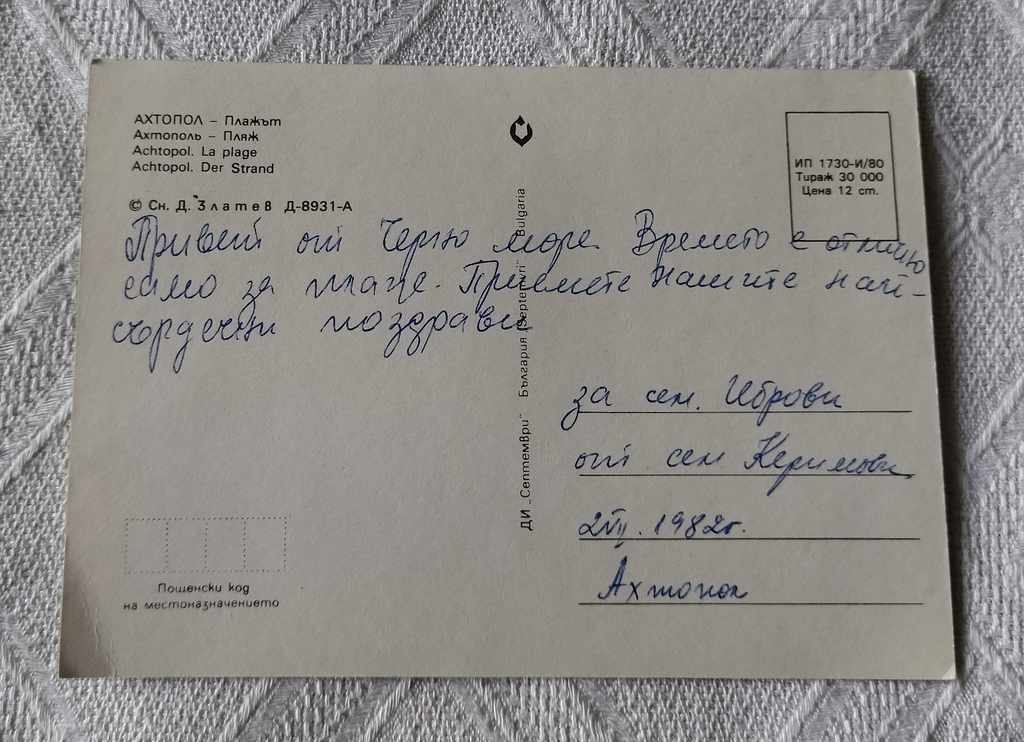 АХТОПОЛ – Плажът
Ахтополь – Пляж
Achtopol. La plage
Achtopol. Der Strand
© Сн. Д. Златев Д-8931-А
ИП 1730-И/80
Тираж 30 000
Цена 12 ст.
Привет от Черно море. Времето е отлично
само за плаж. Приемете нашите най-
сърдечни поздрави
ДИ „Септември“ България /Septemvri“ Bulgaria
за сем. Иброви
от сем Керимови
2 VII. 1982г.
Ахтопол
Пощенски код
на местоназначението